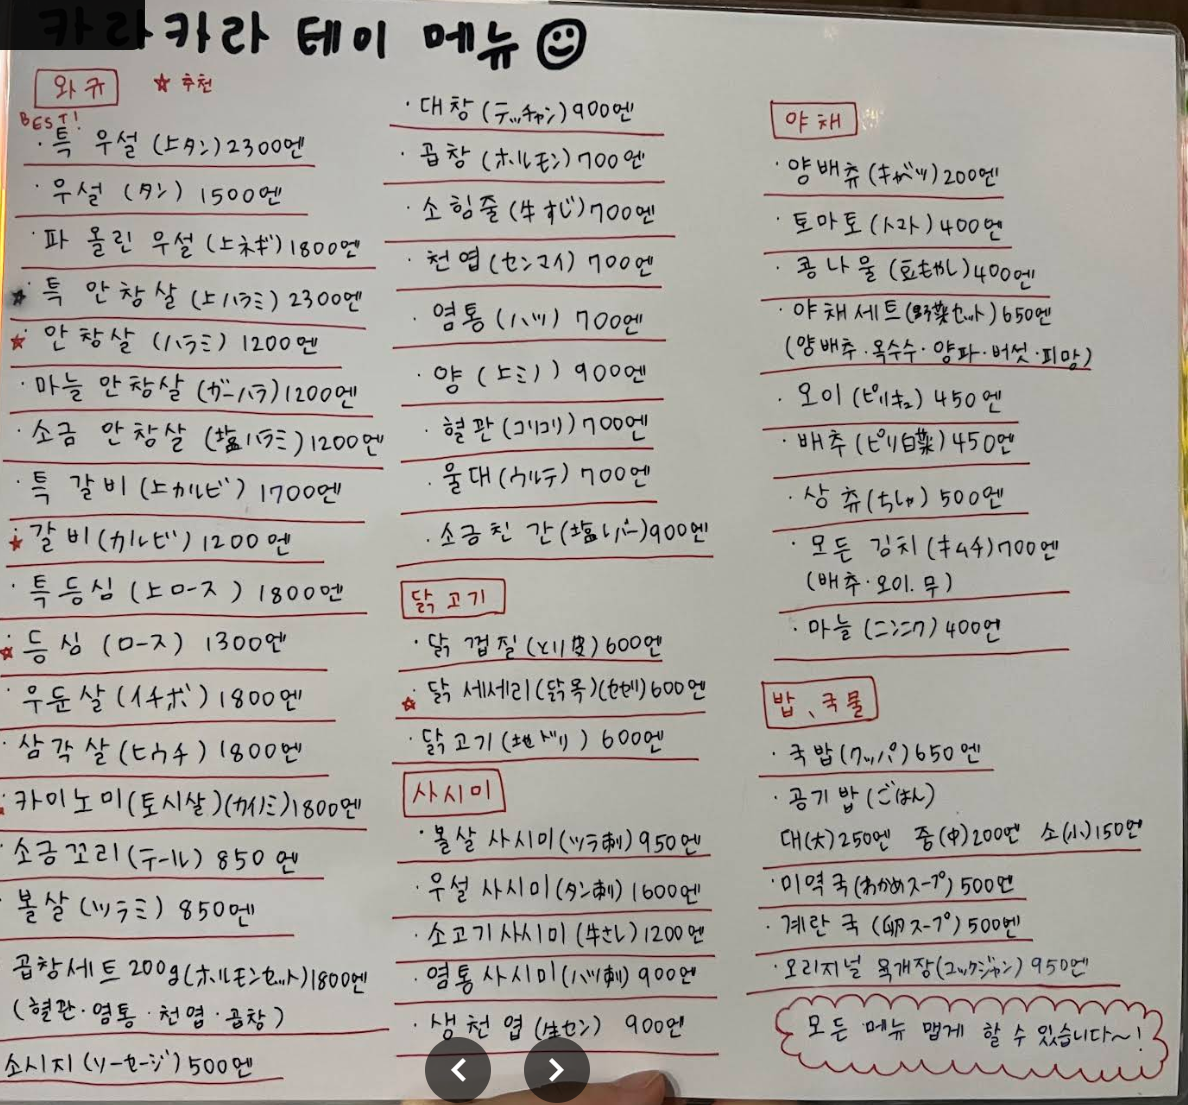 카라카라 테이 메뉴
와규
☆ 추천
BEST!
· 특 우설 (上タン) 2300엔
· 우설 (タン) 1500엔
· 파 올린 우설 (上ネギ) 1800엔
★· 특 안창살 (上ハラミ) 2300엔
☆· 안창살 (ハラミ) 1200엔
· 마늘 안창살 (ガーハラ) 1200엔
· 소금 안창살 (塩ハラミ) 1200엔
· 특 갈비 (上カルビ) 1700엔
☆· 갈비 (カルビ) 1200엔
· 특등심 (上ロース) 1800엔
☆· 등심 (ロース) 1300엔
· 우둔살 (イチボ) 1800엔
· 삼각살 (ヒウチ) 1800엔
· 카이노미(토시살)(カイノミ)1800엔
· 소금꼬리 (テール) 850엔
· 볼살 (ツラミ) 850엔
곱창세트 200g (ホルモンセット) 1800엔
(혈관·염통·천엽·곱창)
소시지 (ソーセージ) 500엔
· 대창 (テッチャン) 900엔
· 곱창 (ホルモン) 700엔
· 소힘줄 (牛すじ) 700엔
· 천엽 (センマイ) 700엔
· 염통 (ハツ) 700엔
· 양 (上ミノ) 900엔
· 혈관 (コリコリ) 700엔
· 울대 (ウルテ) 700엔
· 소금친 간 (塩レバー) 900엔
닭고기
· 닭 껍질 (とり皮) 600엔
☆· 닭 세세리(닭목)(セセリ) 600엔
· 닭고기 (地ドリ) 600엔
사시미
· 볼살 사시미 (ツラ刺) 950엔
· 우설 사시미 (タン刺) 1600엔
· 소고기사시미 (牛さし) 1200엔
· 염통사시미 (ハツ刺) 900엔
· 생천엽 (生セン) 900엔
야채
· 양배츄 (キャベツ) 200엔
· 토마토 (トマト) 400엔
· 콩나물 (豆もやし) 400엔
· 야채세트 (野菜セット) 650엔
(양배추·옥수수·양파·버섯·피망)
· 오이 (ピリキュ) 450엔
· 배추 (ピリ白菜) 450엔
· 상츄 (ちしゃ) 500엔
· 모든 김치 (キムチ) 700엔
(배추·오이.무)
· 마늘 (ニンニク) 400엔
밥、국물
· 국밥 (クッパ) 650엔
· 공기밥 (ごはん)
대(大)250엔 중(中)200엔 소(小)150엔
· 미역국 (わかめスープ) 500엔
· 계란국 (卵スープ) 500엔
· 오리지널 육개장 (ユッケジャン) 950엔
모든 메뉴 맵게 할 수 있습니다~!